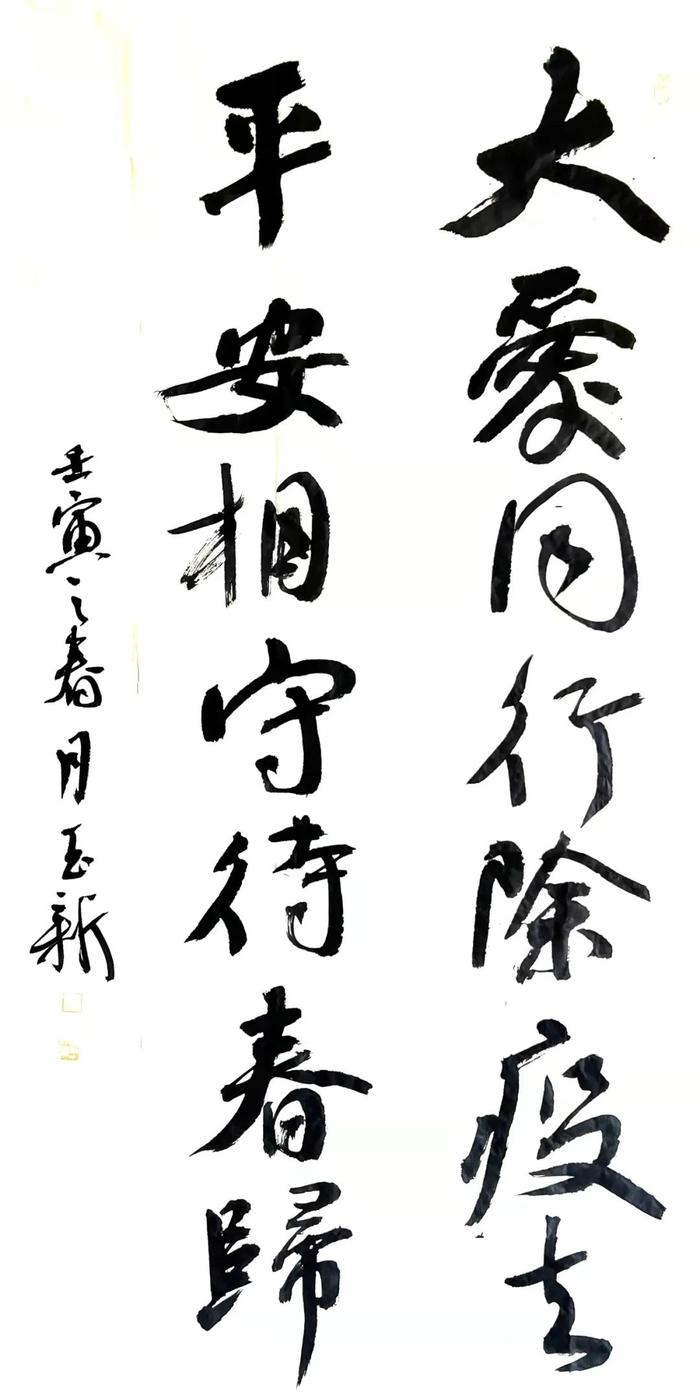 大愛同行除疫去
平安相守待春歸
壬寅之春月玉新